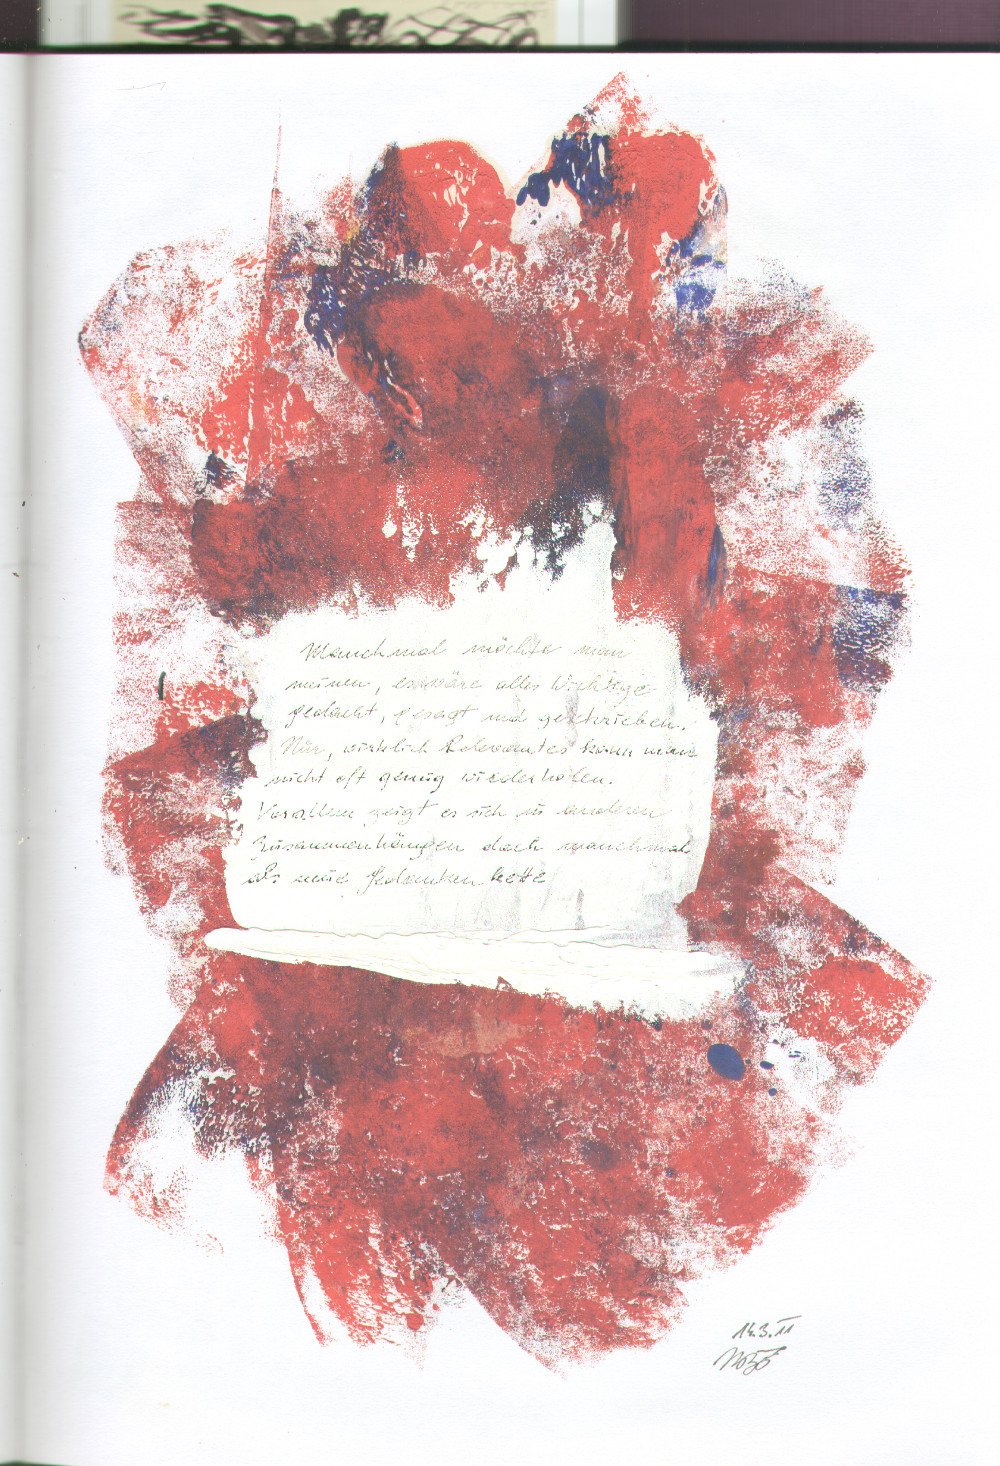 Manchmal möchte man
meinen, es wäre alles Wichtige
gedacht, gesagt und geschrieben.
Nur, wirklich Relevantes kann man
nicht oft genug wiederholen.
Vor allem zeigt es sich in anderen
Zusammenhängen doch manchmal
als neue Gedankenkette
14.3.11